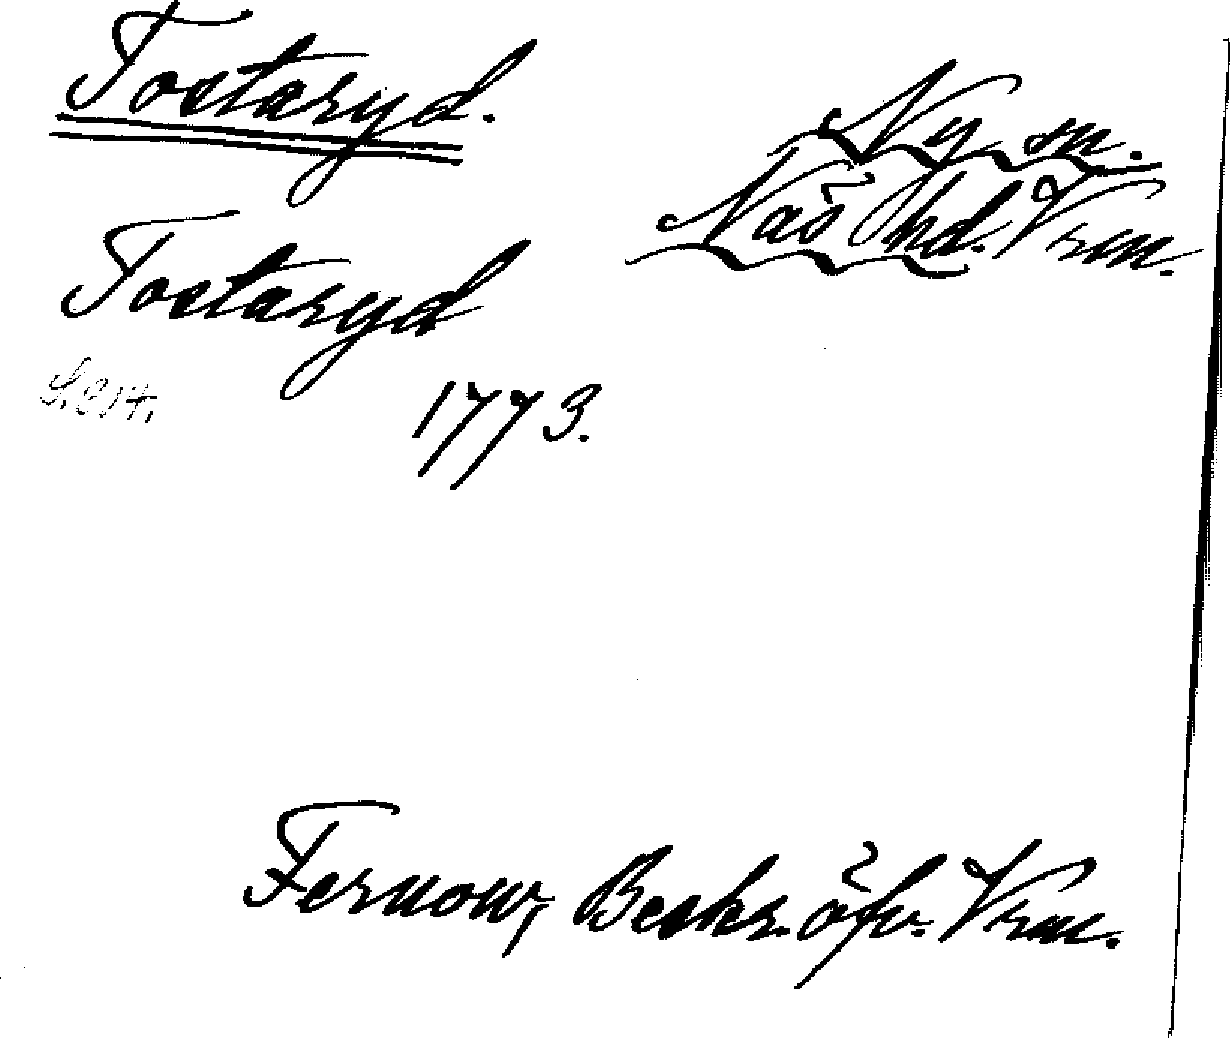 Tostaryd.
Ny sn.
Näs hd. Vrm.
Tostaryd
1773.
Fernow, Beskr. öfv. Vrm.